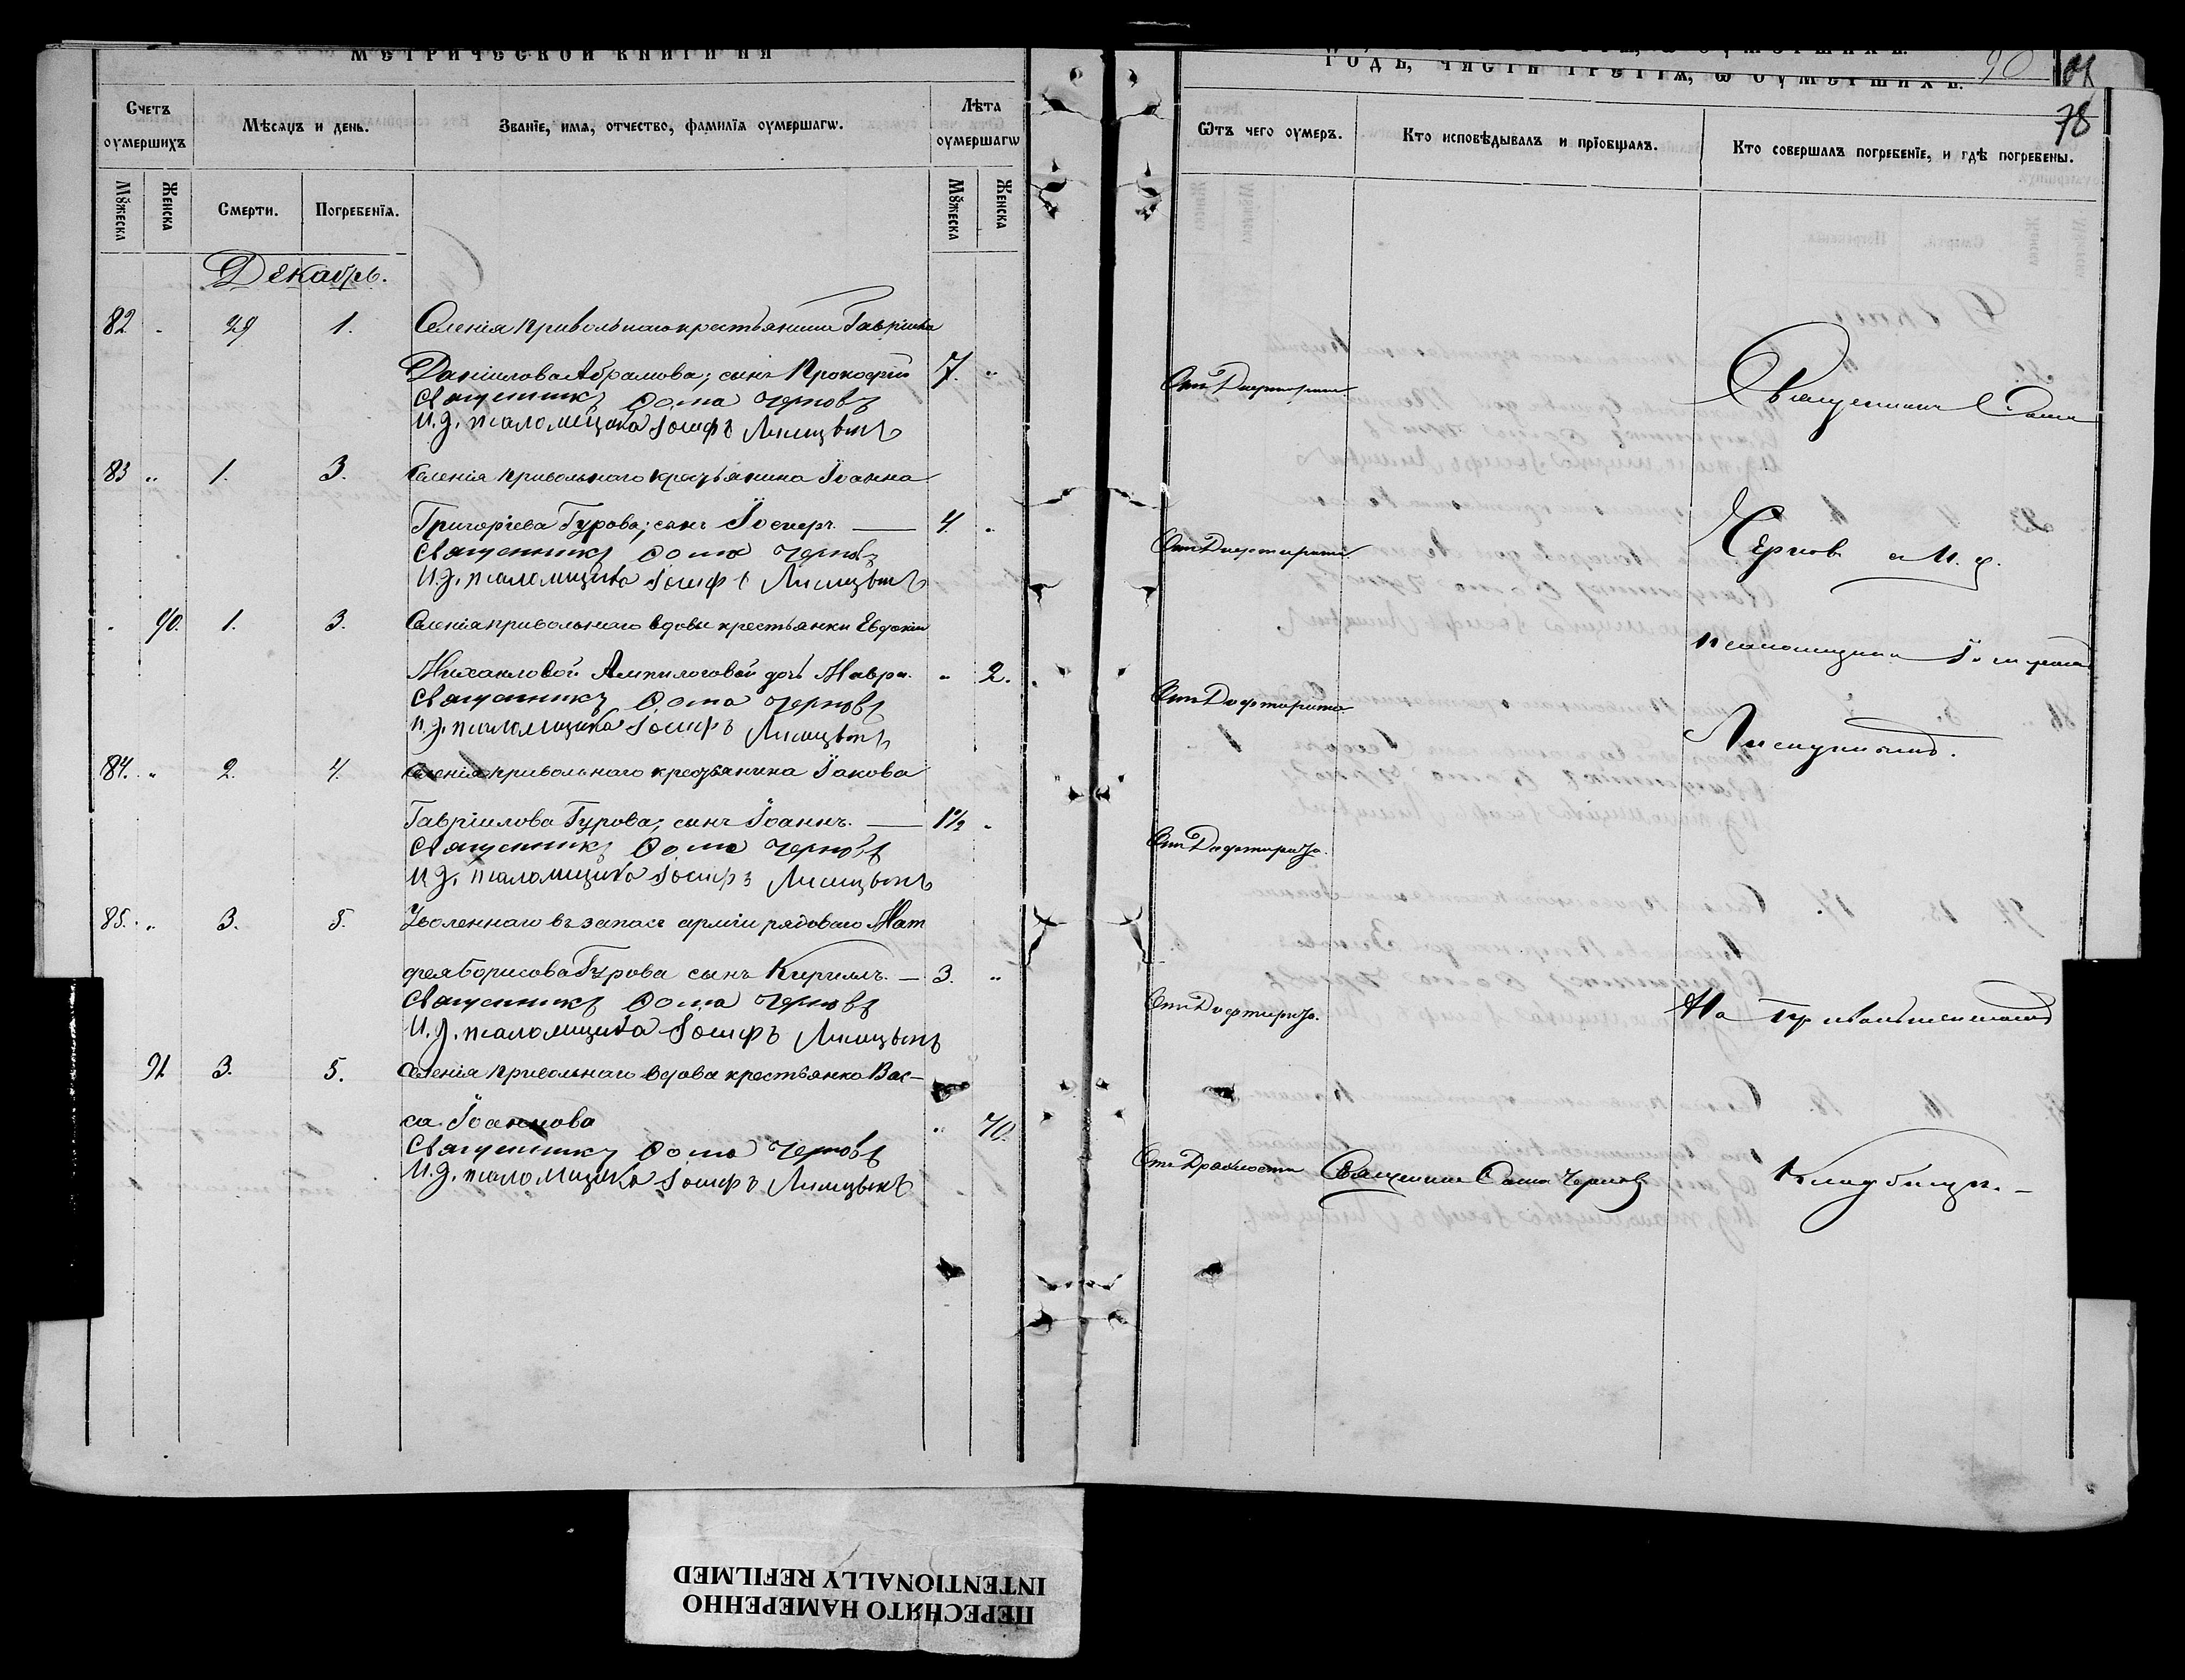 МЕТРИЧЕСКОЙ КНИГИ НА
ГОДЪ, ЧАСТЬ ТРЕТІЯ, Ѡ ОУМЕРШИХЪ.
90
78
Счетъ оумершихъ
Мѣсяцъ и день.
Званіе, имя, отчество, фамилія оумершагѡ.
Лѣта оумершагѡ
Ѿтъ чего оумеръ.
Кто исповѣдывалъ и пріобщалъ.
Кто совершалъ погребеніе, и гдѣ погребены.
Мꙋжеска
Женска
Смерти.
Погребенія.
Мꙋжеска
Женска
Декабрь.
82 29 1. Селенія Привольнаго крестьянина Гавріила
Даніилова Абрамова; сынъ Прокофій 7. „ Отъ Дифтерита
Священникъ Ѳома Черновъ
И. д. псаломщика Іосифъ Лисицынъ
83 „ 1. 3. Селенія Привольнаго крестьянина Іоанна
Григоріева Гурова; сынъ Іосифъ. — 4. „ Отъ Дифтерита
Священникъ Ѳома Черновъ
И. д. псаломщика Іосифъ Лисицынъ
90. 1. 3. Селенія Привольнаго вдовы крестьянки Евдокіи
Михаиловой Ампилоговой дочь Мавра. „ 2. Отъ Дифтерита
Священникъ Ѳома Черновъ
И. д. псаломщика Іосифъ Лисицынъ
84. „ 2. 4. Селенія Привольнаго крестьянина Іакова
Гавріилова Гурова; сынъ Іоаннъ. — 1½ „ Отъ Дифтерита.
Священникъ Ѳома Черновъ
И. д. псаломщика Іосифъ Лисицынъ
85. „ 3. 5. Уволеннаго въ запасъ арміи рядоваго Мат
фея Борисова Гурова сынъ Кириллъ. — 3. „ Отъ Дифтерита.
Священникъ Ѳома Черновъ
И. д. псаломщика Іосифъ Лисицынъ
91 3. 5. Селенія Привольнаго вдова крестьянка Вас-
са Іоаннова „ 70. Отъ Дряхлости Священникъ Ѳома Черновъ
Священникъ Ѳома Черновъ
И. д. псаломщика Іосифъ Лисицынъ
Священникъ Ѳома
Черновъ и И. д.
псаломщика Іосифъ
Лисицынъ.
На Привольненскомъ
Кладбищѣ. —
ПЕРЕСНЯТО НАМЕРЕННО
INTENTIONALLY REFILMED